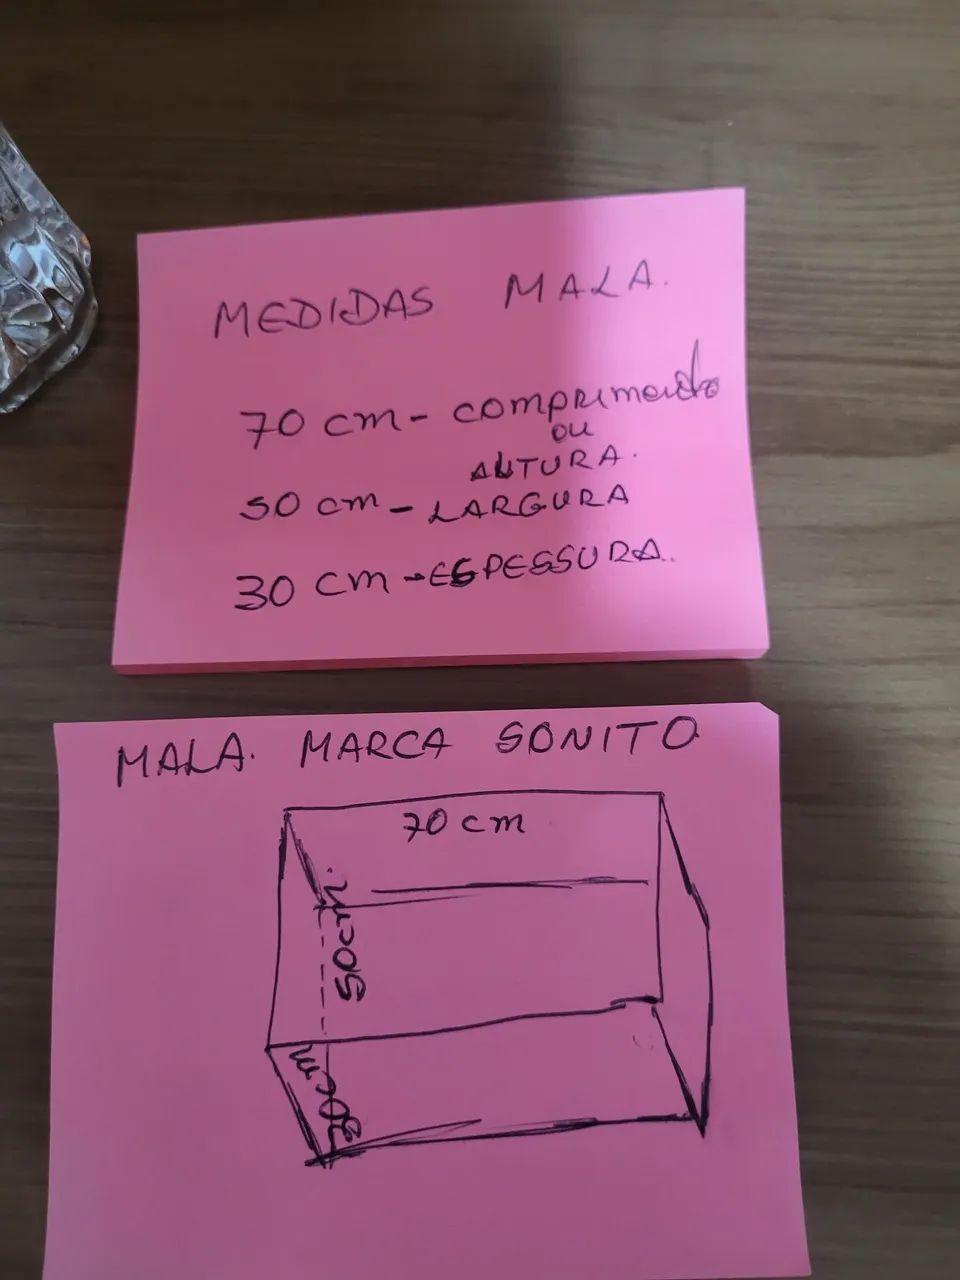 MEDIDAS MALA.
70 cm - comprimento
ou
ALTURA.
50 cm - LARGURA
30 cm - ESPESSURA.
MALA. MARCA SONITO
70 cm
50cm.
30cm